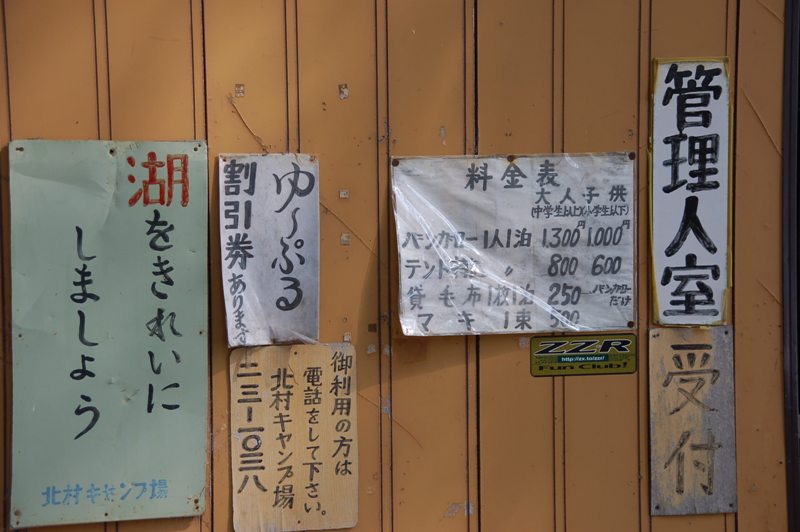 湖をきれいに
しましょう
北村キャンプ場
ゆ〜ぷる
割引券あります
御利用の方は
電話をして下さい。
北村キャンプ場
二三-一〇三八
料金表
大人 子供
(中学生以上)(小学生以下)
バンガロー 1人1泊 1,300円 1,000円
テント 〃 800 600
貸毛布 1枚1泊 250 バンガローだけ
マキ 1束 500
ZZR
http://zx.to/zzr/
Fun Club!
管理人室
受付